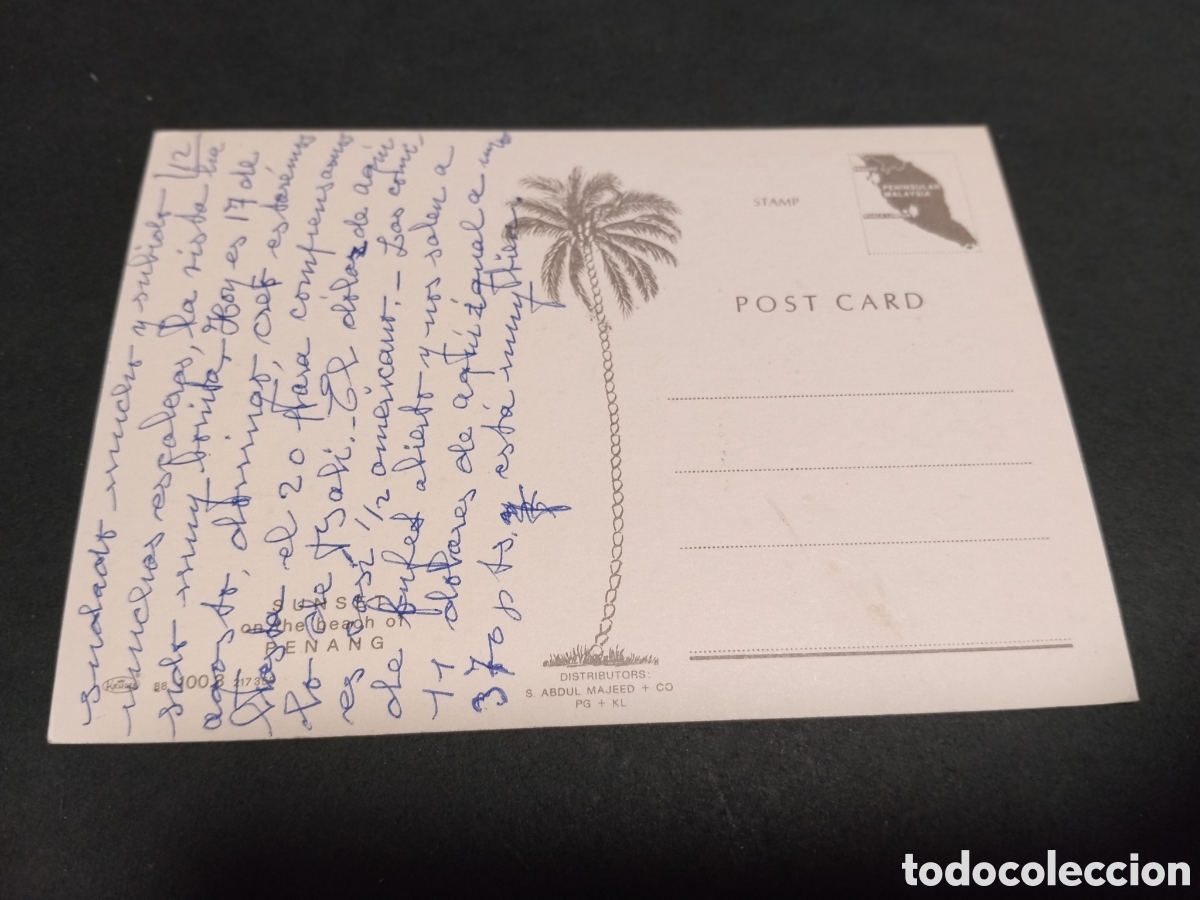 sudado mucho y subido 1/12
muchas escaleras, la vista ha
sido muy bonita, Hoy es 17 de
agosto, domingo, creo estaremos
hasta el 20 para
lo de Bali. - El dólar de aquí
es casi 1/2 americano. - Las comi,
de bufet abierto y nos salen a
11 dolares de aquí igual a
370 pts. y está muy bien.
SUNSET
on the beach of
PENANG
STAMP
PENINSULAR
MALAYSIA
POST CARD
DISTRIBUTORS:
S. ABDUL MAJEED + CO
PG + KL
todocoleccion